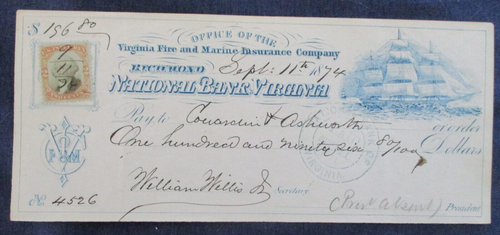 $ 196 80
OFFICE OF THE
Virginia Fire and Marine Insurance Company
RICHMOND Sept: 11th 1874
NATIONAL BANK VIRGINIA
Pay to & Ashworth or order
One hundred and ninety six 80/100 Dollars
William Willis Jr Secretary
No 4526 (Prest absent) President